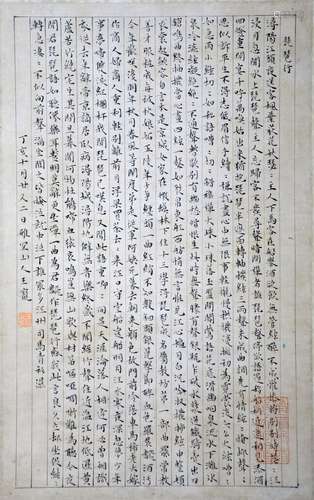 琵琶行
潯陽江頭夜送客楓葉荻花秋瑟瑟主人下馬客在船舉酒欲飲無管絃醉不成歡慘將別別時茫茫江
浸月忽聞水上琵琶聲主人忘歸客不發尋聲暗問彈者誰琵琶聲停欲語遲移船相近邀相見添酒
回燈重開宴千呼萬喚始出來猶抱琵琶半遮面轉軸撥絃三兩聲未成曲調先有情絃絃掩抑聲聲
思似訴平生不得志低眉信手續續彈說盡心中無限事輕攏慢撚抹復挑初為霓裳後六幺大絃嘈嘈
如急雨小絃切切如私語嘈嘈切切錯雜彈大珠小珠落玉盤間關鶯語花底滑幽咽泉流水下灘水泉
冷澀絃凝絕凝絕不通聲暫歇別有幽愁暗恨生此時無聲勝有聲銀瓶乍破水漿迸鐵騎突出刀
鎗鳴曲終收撥當心畫四絃一聲如裂帛東船西舫悄無言唯見江心秋月白沉吟放撥插絃中整頓
衣裳起斂容自言本是京城女家在蝦蟆陵下住十三學得琵琶成名屬教坊第一部曲罷常教
善才服粧成每被秋娘妬五陵年少爭纏頭一曲紅綃不知數鈿頭銀篦擊節碎血色羅裙翻酒污
今年歡笑復明年秋月春風等閒度弟走從軍阿姨死暮去朝來顏色故門前冷落車馬稀老大嫁
作商人婦商人重利輕別離前月浮梁買茶去去來江口守空船遶船明月江水寒夜深忽夢少年
事夢啼粧淚紅闌干我聞琵琶已嘆息又聞此語重唧唧同是天涯淪落人相逢何必曾相識我從
去年辭帝京謫居臥病潯陽城潯陽地僻無音樂終歲不聞絲竹聲住近湓江地低濕黃
蘆苦竹繞宅生其間旦暮聞何物杜鵑啼血猿哀鳴豈無山歌與村笛嘔啞嘲哳難為聽今夜
聞君琵琶語如聽仙樂耳暫明莫辭更坐彈一曲為君翻作琵琶行感我此言良久立却坐促絃
轉急凄凄不似向前聲滿座聞之皆掩泣就中泣下誰最多江州司馬青衫濕
丁亥十月廿八日雅宜山人王寵